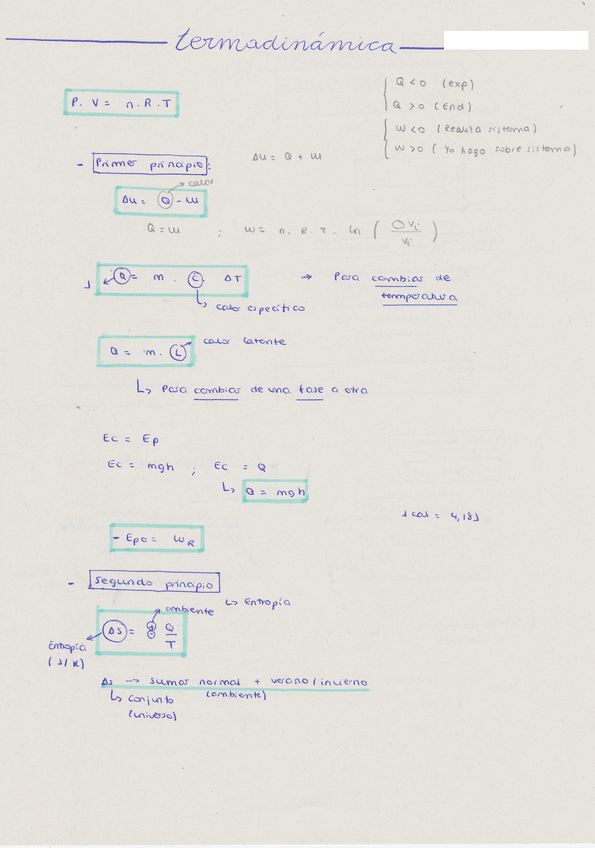 termodinámica
P. V = n. R. T
Q < 0 (exp)
Q > 0 (End)
W < 0 (Realiza sistema)
W > 0 ( Yo hago sobre sistema)
- Primer principio:
ΔU = Q + W
calor
ΔU = Q - W
Q = W ; W = n. R. T. ln ( Vi / Vi )
J Q = m . C . ΔT → Para cambios de
temperatura
calor específico
Q = m. L calor latente
↳ Para cambios de una fase a otra
Ec = Ep
Ec = mgh ; Ec = Q
↳ Q = mgh
1 cal = 4,18J
- Epo = WR
- Segundo principio
↳ Entropía
ambiente
ΔS = ⊕ ⊖ Q / T
Entropía
( J / K )
Δs → sumas normal + verano / invierno
(ambiente)
↳ conjunto
(universo)